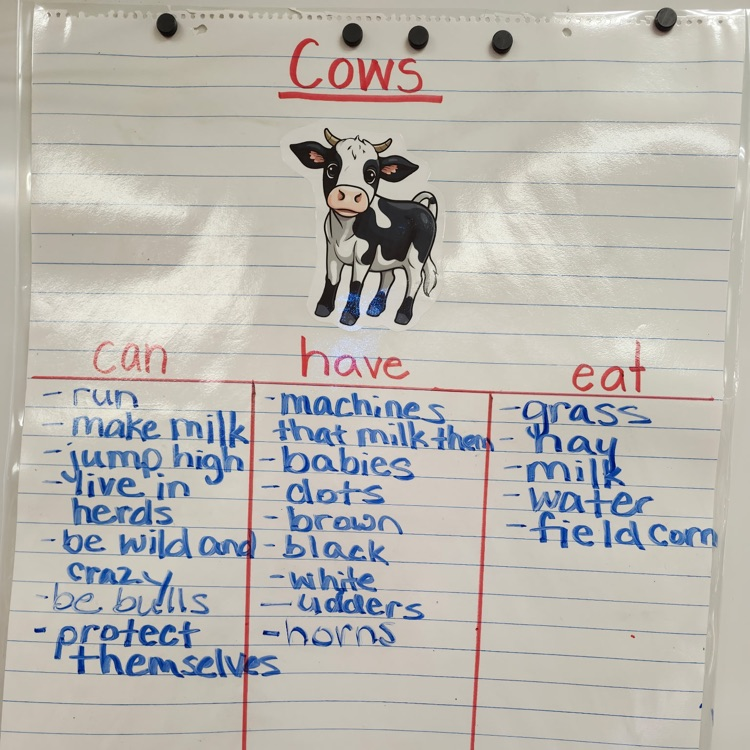 Cows
can
have
eat
- run
- make milk
- jump high
- live in
herds
- be wild and
crazy
- be bulls
- protect
themselves
- machines
that milk them
- babies
- dots
- brown
- black
- white
- udders
- horns
- grass
- hay
- milk
- water
- field corn